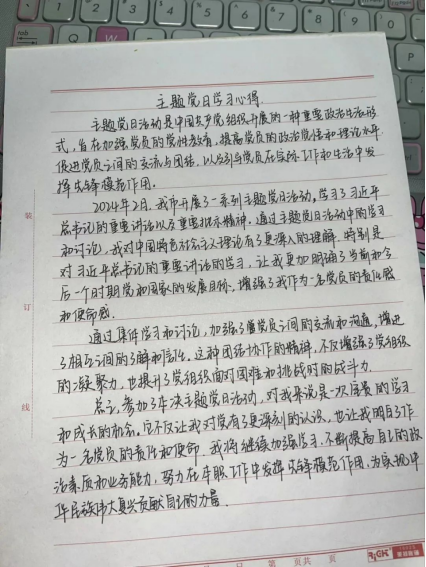 主题党日学习心得
主题党日活动是中国共产党组织开展的一种重要政治生活形
式，旨在加强党员的党性教育，提高党员的政治觉悟和理论水平
促进党员之间的交流与团结，以及引导党员在实际工作和生活中发
挥先锋模范作用。
2024年2月，我市开展了一系列主题党日活动，学习了习近平
总书记的重要讲话以及重要指示精神。通过主题党日活动中的学习
和讨论，我对中国特色社会主义理论有了更深入的理解。特别是
对习近平总书记的重要讲话的学习，让我更加明确了当前和今
后一个时期党和国家的发展目标，增强了我作为一名党员的责任感
和使命感。
通过集体学习和讨论，加强了党员之间的交流和沟通，增进
了相互之间的了解和信任。这种团结协作的精神，不仅增强了党组织
的凝聚力，也提升了党组织面对困难和挑战时的战斗力。
总之，参加了本次主题党日活动，对我来说是一次宝贵的学习
和成长的机会。它不仅让我对党有了更深刻的认识，也让我明白了作
为一名党员的责任和使命。我将继续加强学习，不断提高自己的政
治素质和业务能力，努力在本职工作中发挥先锋模范作用，为实现中
华民族伟大复兴贡献自己的力量。
装
订
线
第 页共 页